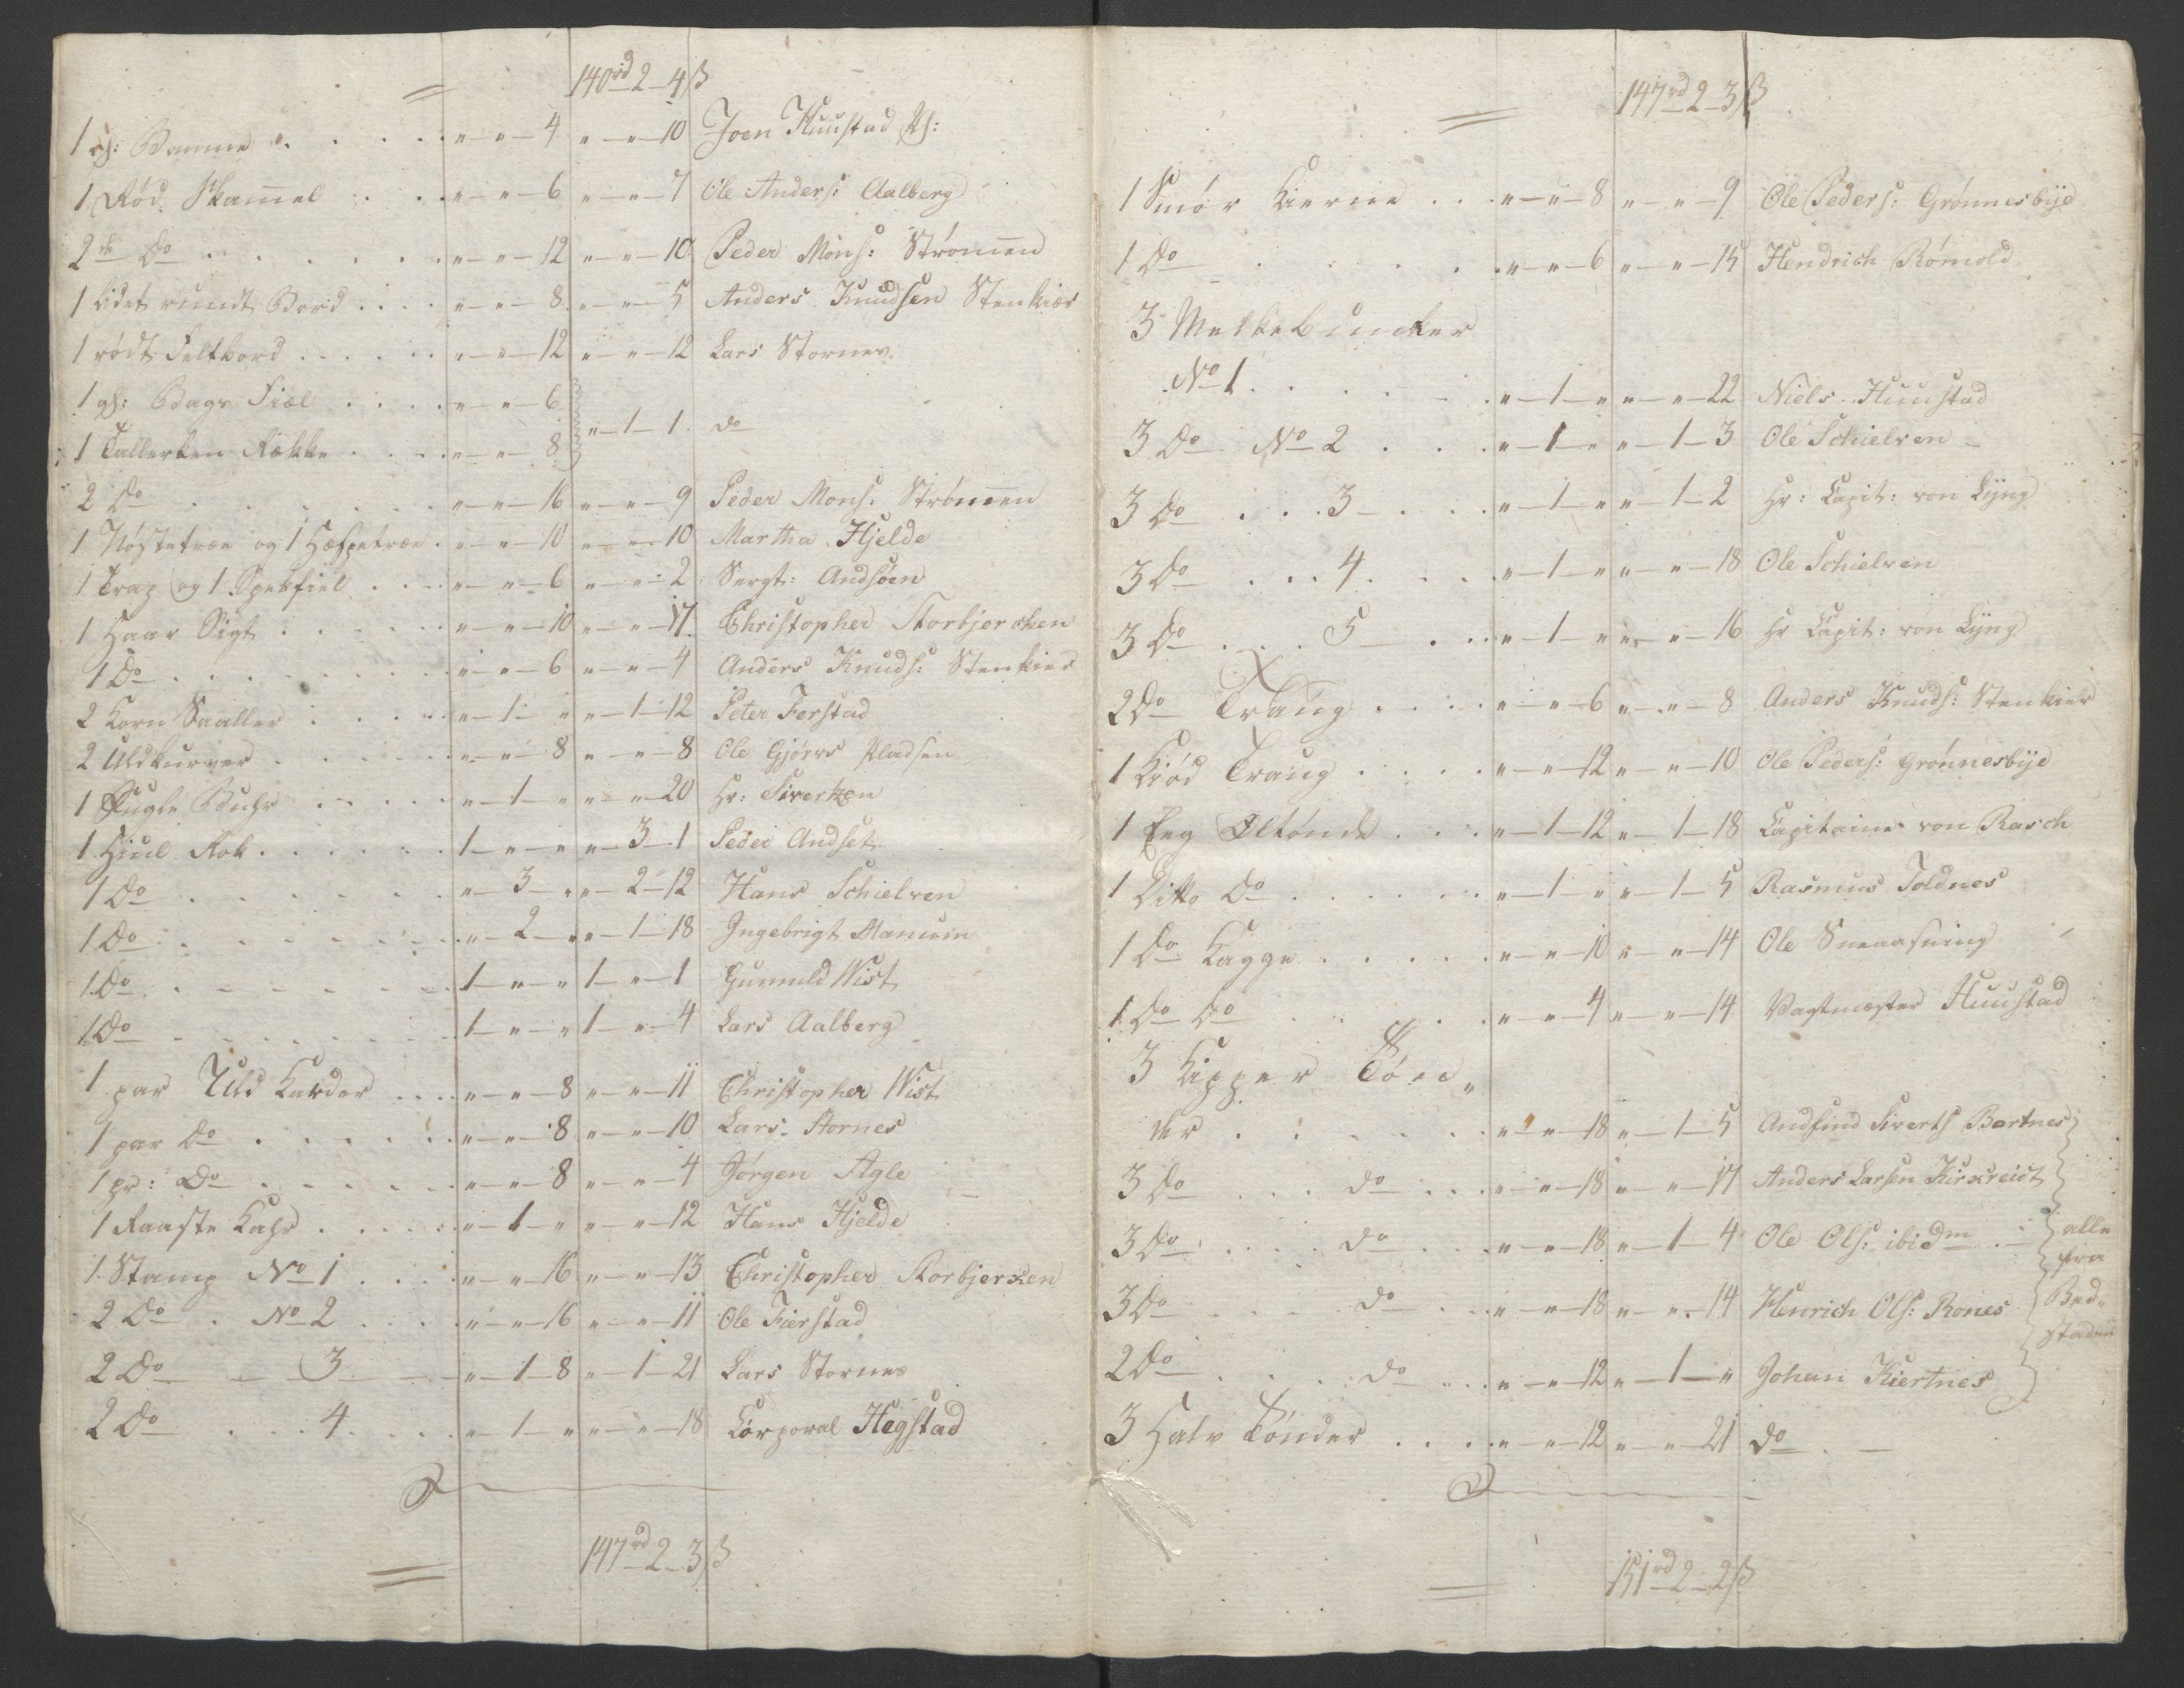 140rd 2 4 β
1 gl: Bomme . . . . . " " 4 " " 10 Joen Huustad Ys:
1 Rød Skammel . . . " " 6 " " 7 Ole Anders: Aalberg
2de Do . . . . . . " " 12 " " 10 Peder Mons: Strømmen
1 Lidet rundt Bord . . . . " " 8 " " 5 Anders Knudsen Stenkier
1 rødt Feltbord . . . . . . " " 12 " " 12 Lars Stornes
1 gl: Bags Fiæl . . . . " " 6
1 Tallerken Række . . . . " " 8 " 1 1 do
2 Do . . . . . . " " 16 " " 9 Peder Mons: Strømmen
1 Nøstetræe og 1 Hæspetræe . " " 10 " " 10 Martha Hjelde
1 Trap og 1 Spekfiel . . . " " 6 " " 2 Sergt: Andsøen
1 Haar Sigt . . . . . " " 10 " " 17 Christopher Storbjerchen
1 Do . . . . . . . " " 6 " " 4 Anders Knuds: Stenkier
2 Korn Saaller . . . . " 1 " " 1 12 Peter Ferstad
2 Uldkurver . . . . . . " " 8 " " 8 Ole Gjørvs Pladsen
1 Fugle Buhr . . . . . " 1 " " " 20 Hr: Sivertzen
1 Hiul Rok . . . . . . 1 " " " 3 1 Peder Andset
1 Do . . . . . . " 3 " " 2 12 Hans Schielven
1 Do . . . . . . " 2 " " 1 18 Ingebrigt Manuin
1 Do . . . . . . 1 " " 1 " 1 Gunnuld Wist
1 Do . . . . . . 1 " " 1 " 4 Lars Aalberg
1 par Uld Karder . . . . " " 8 " " 11 Christopher Wist
1 par Do . . . . . . " " 8 " " 10 Lars Stornes
1 pr: Do . . . . . . " " 8 " " 4 Jørgen Agle
1 Raaste Kahr . . . . . " 1 " " " 12 Hans Hjelde
1 Stamp No 1 . . . " " 16 " " 13 Christopher Storbjerken
2 Do . No 2 . . . . " " 16 " " 11 Ole Fierstad
2 Do 3 " 1 8 " 1 21 Lars Stornes
2 Do . . . 4 . . . . " 1 " " " 18 Corporal Hegstad
147rd 2 3 β
147rd 2 3 β
1 Smør Kierne . . . " " 8 " " 9 Ole Peders: Grønnesbÿe
1 Do . . . . . " " 6 " " 15 Hendrich Rømold
3 Melkebuncker
No 1 . . . . . . " 1 " " " 22 Niels Huustad
3 Do No 2 . . . " 1 " " 1 3 Ole Schielven
3 Do . . . 3 . . . " 1 " " 1 2 Hr: Capit: von Lÿng
3 Do . . . 4 . . . . " 1 " " " 18 Ole Schielven
3 Do . . . 5 . . . " 1 " " " 16 Hr Capit: von Lÿng
2 Do Traug . . . . " " 6 " " 8 Anders Knuds: Stenkier
1 Kiød Traug . . . . " " 12 " " 10 Ole Peders: Grønnesbÿe
1 Eeg Øltønde . . . " 1 12 " 1 18 Capitaine von Rasch
1 Ditto Do . . . . . . " 1 " " 1 5 Rasmus Toldnes
1 Do Kagge . . . . . " " 10 " " 14 Ole Sneaasning
1 Do Do . . . . . " " 4 " " 14 Vagtmæster Huustad
3 Kipper Tøn„
der . . . . . . " " 18 " 1 5 Andfind Siverts Bartnes
3 Do . . . do . . . " " 18 " " 17 Anders Larsen Kirkreidt
3 Do . . . . do . . . " " 18 " 1 4 Ole Ols: ibidm alle
fra
3 Do . . . . do . . . " " 18 " " 14 Henrich Ols: Rones Bed„
staden
2 Do . . . do . . . " " 12 " 1 " Johan Kiertnes
3 Halv Tønder . . . . " " 12 " " 21 do
151rd 2 2 β